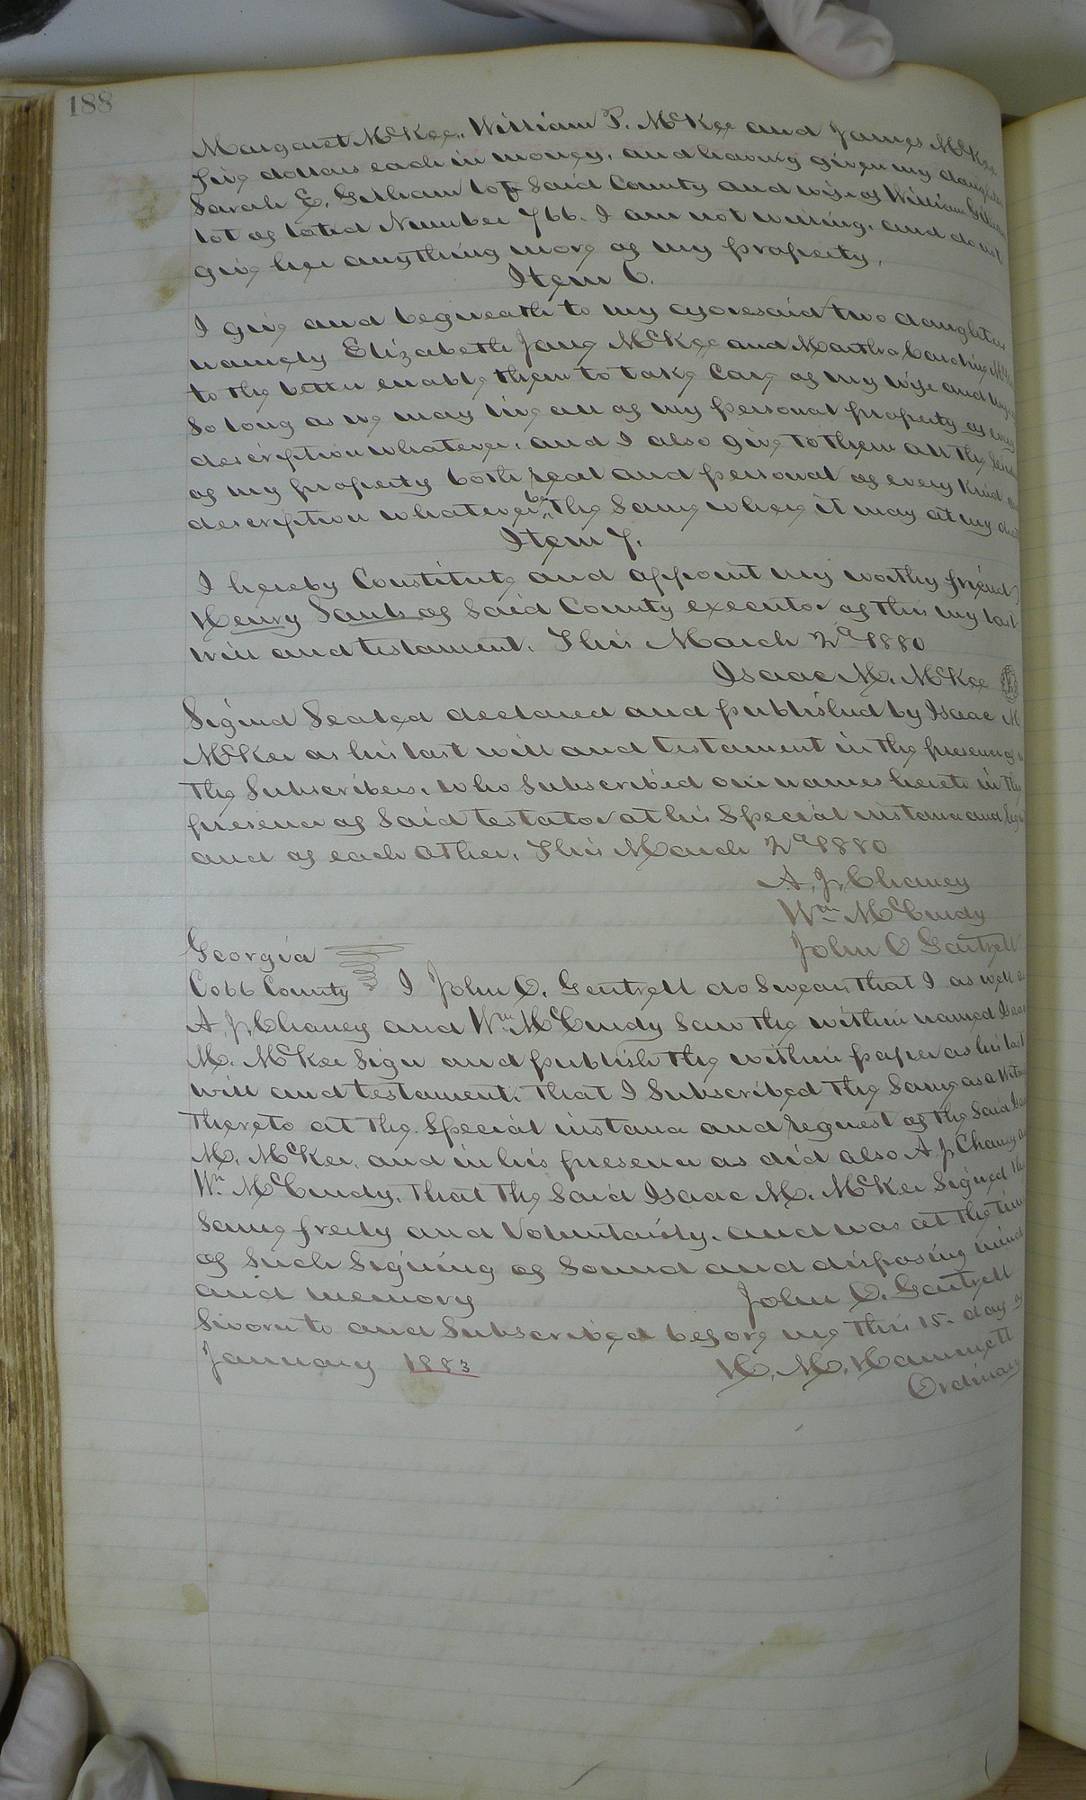 188
Margaret McKee, William P. McKee and James McKee
five dollars each in money, and having given my daughter
Sarah E. Gilham of Said County and wife of William Gilham
lot of land Number 766. I am not willing, and do not
give her anything more of my property.
Item 6.
I give and bequeath to my aforesaid two daughters
namely Elizabeth Jane McKee and Martha Caroline McKee
to the better enable them to take Care of my wife and
So long as we may live all of my personal property of every
description whatever, and I also give to them all the
of my property both real and personal of every Kind
description whatever be the Same where it may at my
Item 7.
I hereby Constitute and appoint my worthy friend
Henry of Said County executor of this my last
will and testament. This March 2d 1880
Isaac M. McKee
Signed Sealed declared and published by Isaac M
McKee as his last will and testament in the presence of
the Subscribers, who Subscribed our names hereto in the
presence of Said testator at his Special instance and
and of each other. This March 2d 1880
A. J. Chaney
Wm McCurdy
John O Gantrell
Georgia
Cobb County I John O. Gentrell do Swear that I as well as
A. J. Chaney and Wm McCurdy Saw the within named Isaac
M. McKee Sign and publish the within paper as his last
will and testament. that I Subscribed the Same as a
thereto at the Special instance and request of the Said
M. McKee, and in his presence as did also A J Chaney
Wm McCurdy. that the Said Isaac M. McKee Signed the
Same freely and Voluntarily, and was at the time
of Such Signing of Sound and disposing mind
and memory
John O. Gentrell
Sworn to and Subscribed before me this 15 day of
January 1883
H. M. Hammett
Ordinary